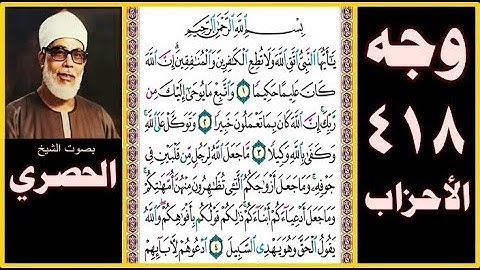 وجه
٤١٨
الأحزاب
بسم الله الرحمن الرحيم
يَٰٓأَيُّهَا ٱلنَّبِيُّ ٱتَّقِ ٱللَّهَ وَلَا تُطِعِ ٱلْكَٰفِرِينَ وَٱلْمُنَٰفِقِينَ إِنَّ ٱللَّهَ
كَانَ عَلِيمًا حَكِيمًا ١ وَٱتَّبِعْ مَا يُوحَىٰٓ إِلَيْكَ مِن
رَّبِّكَ إِنَّ ٱللَّهَ كَانَ بِمَا تَعْمَلُونَ خَبِيرًا ٢ وَتَوَكَّلْ عَلَى ٱللَّهِ
وَكَفَىٰ بِٱللَّهِ وَكِيلًا ٣ مَّا جَعَلَ ٱللَّهُ لِرَجُلٍ مِّن قَلْبَيْنِ فِي
جَوْفِهِۦ وَمَا جَعَلَ أَزْوَٰجَكُمُ ٱلَّٰٓـِٔي تُظَٰهِرُونَ مِنْهُنَّ أُمَّهَٰتِكُمْ
وَمَا جَعَلَ أَدْعِيَآءَكُمْ أَبْنَآءَكُمْ ذَٰلِكُمْ قَوْلُكُم بِأَفْوَٰهِكُمْ وَٱللَّهُ
يَقُولُ ٱلْحَقَّ وَهُوَ يَهْدِي ٱلسَّبِيلَ ٤ ٱدْعُوهُمْ لِأٓبَآئِهِمْ
بصوت الشيخ
الحصري